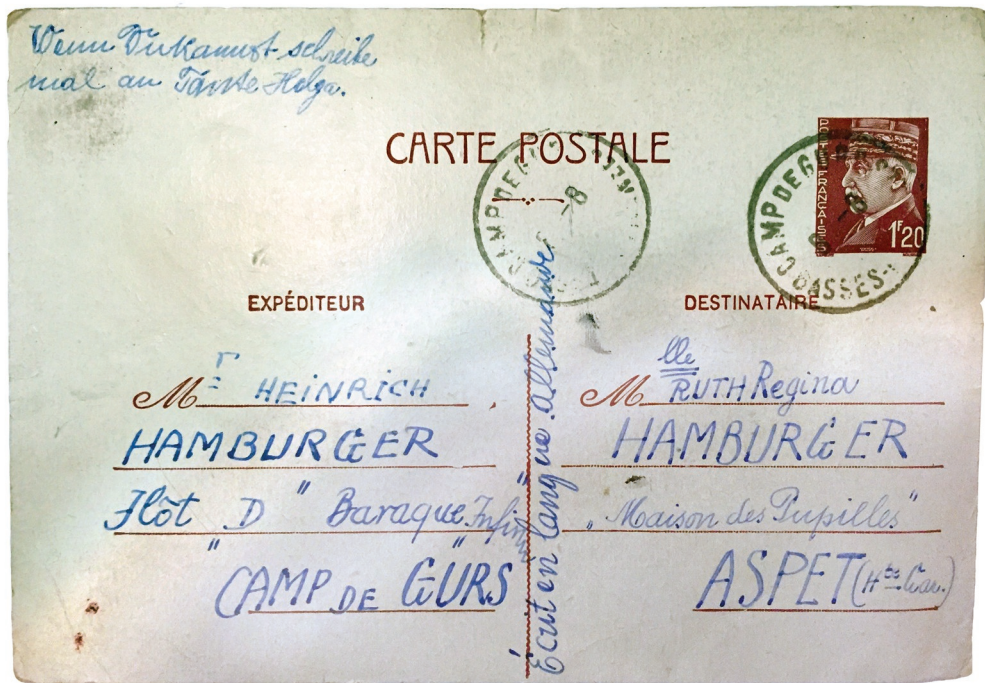 Wenn Du kannst schreibe
mal an Tante Helga.
CARTE POSTALE
POSTES FRANÇAISES
1F20
CAMP DE GURS
CAMP DE GURS
BASSES-
EXPÉDITEUR
Mr HEINRICH
HAMBURGER
Ilôt "D" Baraque "Infirm
CAMP DE GURS
Écrit en langue allemande
DESTINATAIRE
Mlle RUTH Regina
HAMBURGER
"Maison des Pupilles"
ASPET (Hte Gar.)